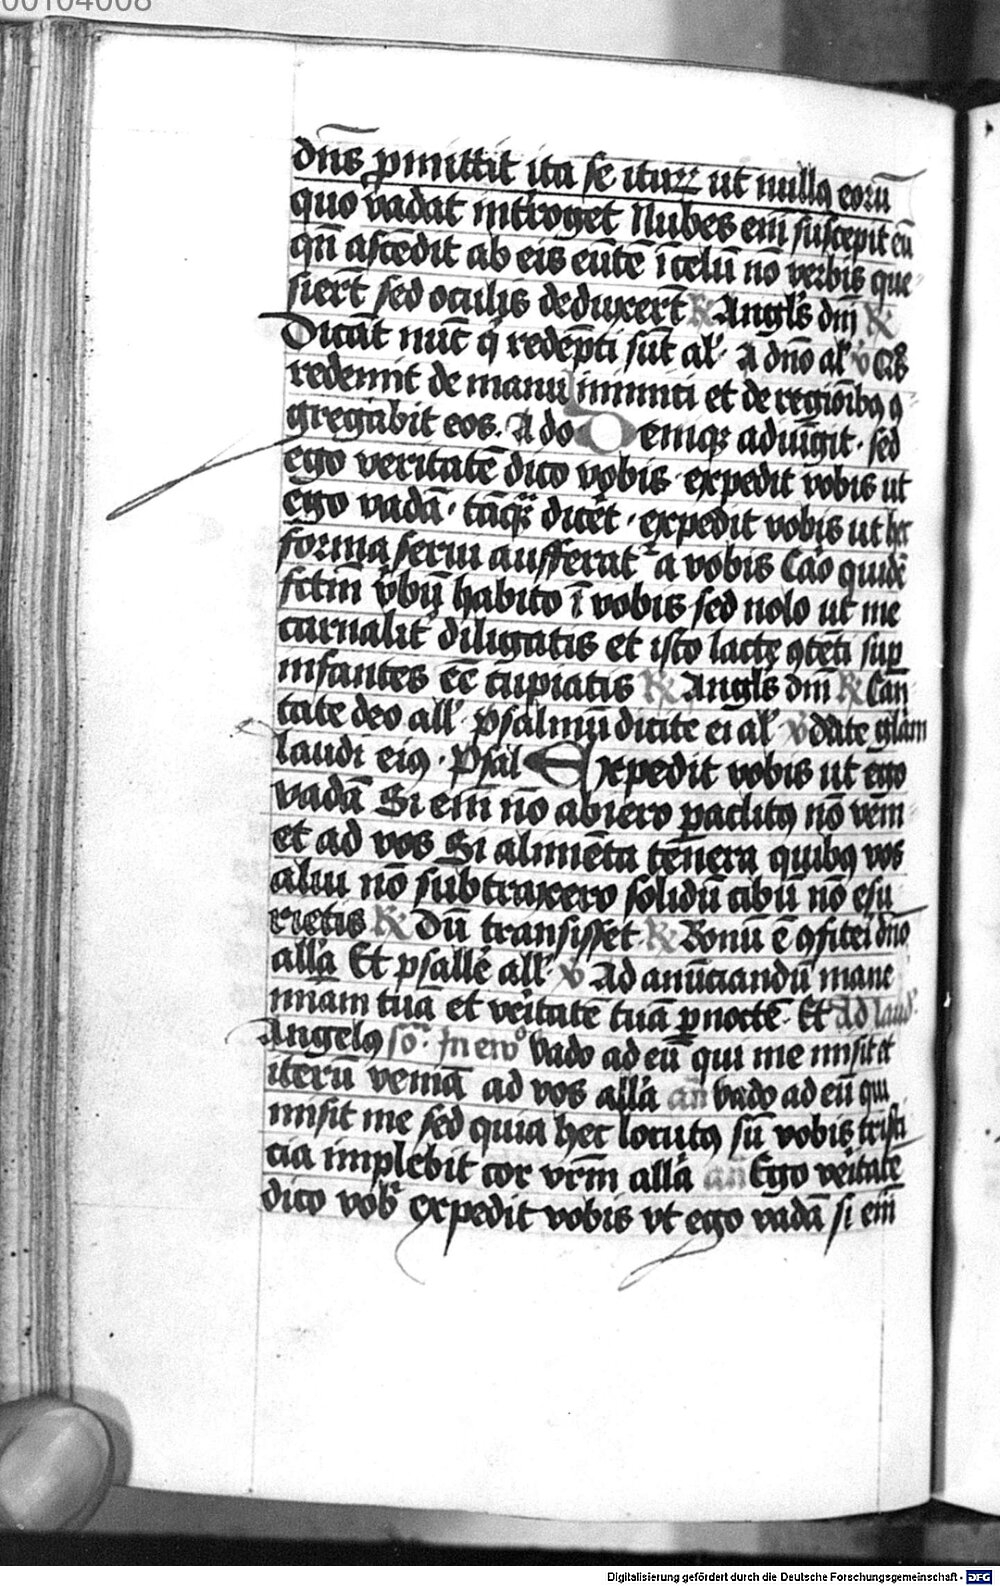 00104008
dn̄s ꝑmittit ita se ituꝝ ut nullꝯ eoꝝ
quo vadat int̄roget Nubes em̄ suscepit eū
qn̄ ascēdit ab eis eūtē ī celū nō verbis que
siert̄ sed oculis deduxert̄ ℟ Angl̓s dm̄ ℟
Dicāt nūc q̓ redēpti sūt al̓ · A dn̄o al̓ ℣ Qͦs
redemit de manu inimici et de regiōibꝯ ꝯ
gregabit eos. A do Deniqꝫ adiūgit · sed
ego veritatē dico vobis · expedit vobis ut
ego vadā · tāqꝫ dicēt · expedit vobis ut hec
forma serui aufferat᷑ a vobis Caͦ quidē
fc̄m v̓bū habito ī vobis sed nolo ut me
carnalit̓ diligatis et isto lacte ꝯtēti sup̱
infantes eē cupiatis ℟ Angl̓s dm̄ ℟ Can
tate deo all̓ psalmū dicite ei al̓ ℣ date gl̄am
laudi eiꝯ · Psal̓ Expedit vobis ut ego
vadā Si em̄ nō abiero paclitꝯ nō veni
et ad vos Si alimēta tēnera quibꝯ vos
alui nō subtraxero solidū cibū nō esu
rietis ℟ Dū transisset ℟ Bonū ē ꝯfitei dn̄o
all̓a Et psalle᷑ all̓ ℣ Ad anūciandū mane
miām tuā et v̓itatē tuā ꝑ noctē · Et Ad laud̓
Angelꝯ so᷑ · In ew° Vado ad eū qui me misit et
iterū veniā ad vos all̓a an̄ Vado ad eū qui
misit me sed quia hec locutꝯ sū vobis tristi
cia implebit cor vr̄m all̓a an̄ Ego v̓itatē
dico vob̓ expedit vobis vt ego vadā si em̄
Digitalisierung gefördert durch die Deutsche Forschungsgemeinschaft - DFG